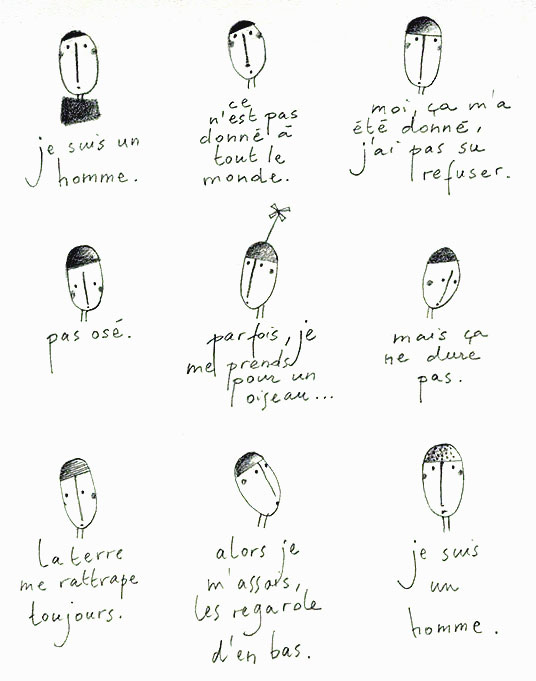 je suis un
homme.
ce
n'est pas
donné à
tout le
monde.
moi, ça m'a
été donné,
j'ai pas su
refuser.
pas osé.
parfois, je
me prends
pour un
oiseau...
mais ça
ne dure
pas.
la terre
me rattrape
toujours.
alors je
m'assois,
les regarde
d'en bas.
je suis
un
homme.